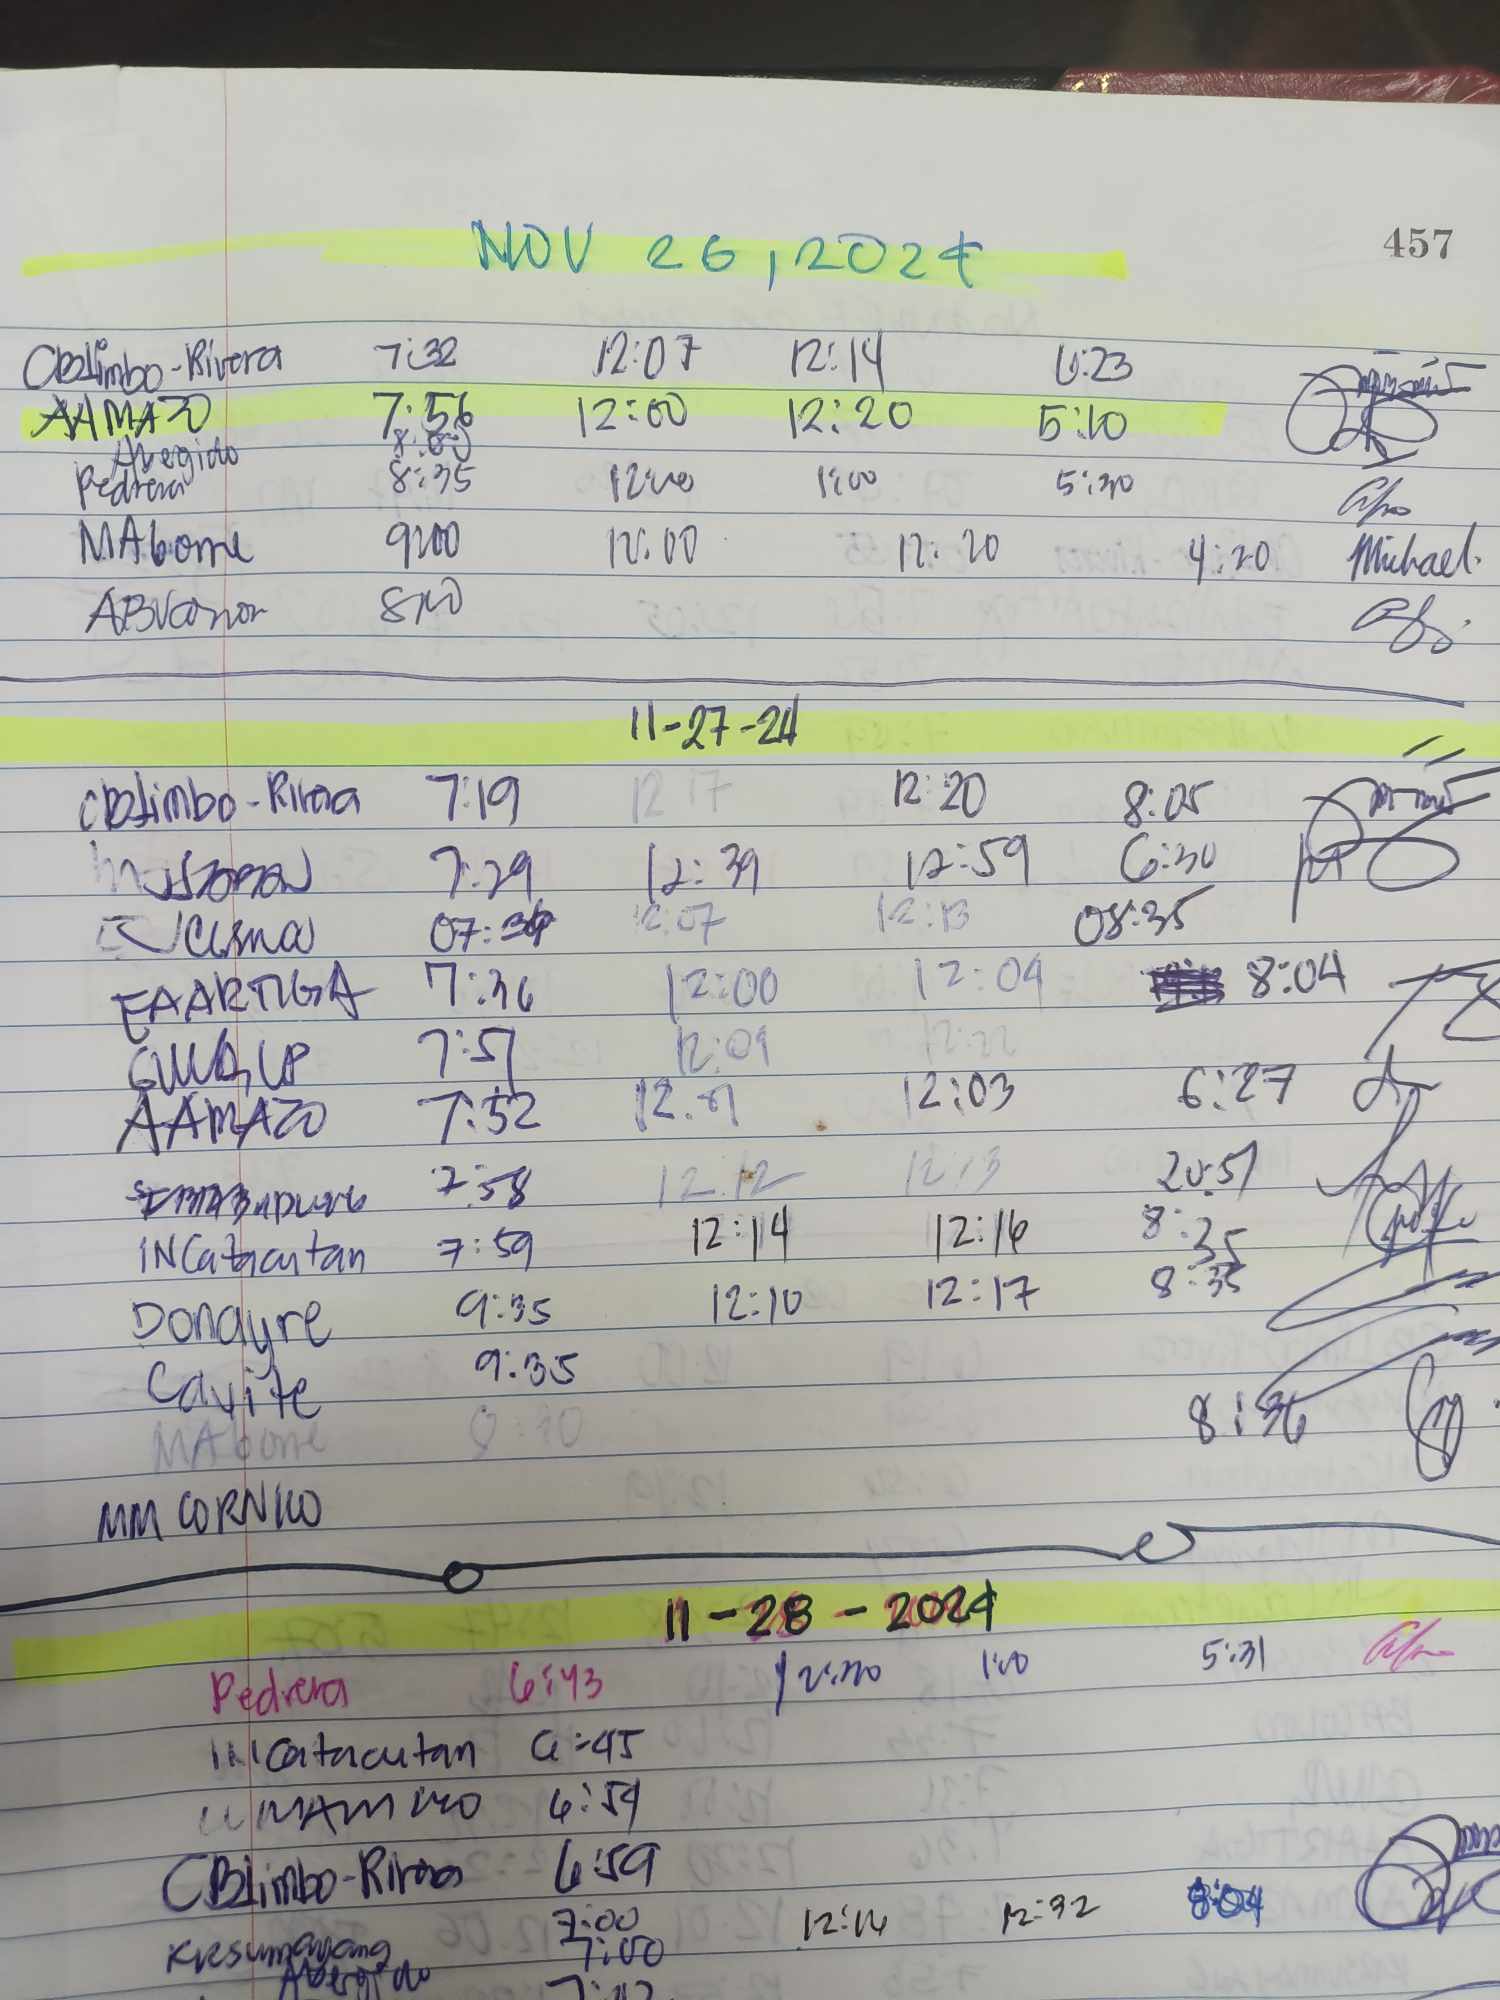 457
NOV 26, 2024
CBLimbo-Rivera 7:32 12:07 12:14 6:23
AAMAZO 7:56 12:00 12:20 5:10
Abegido 8:00
Pedrera 8:35 12:00 1:00 5:30
MAbome 9:00 12:00 12:20 4:20 Michael.
8:00
11-27-24
CBLimbo-Rivera 7:19 12 17 12:20 8:05
7:29 12:39 12:59 6:30
07:34 12:07 12:13 08:35
EAARTIGA 7:36 12:00 12:04 8:04
7:51 12:09 12:22
AAMAZO 7:52 12:01 12:03 6:27
7:58 12.12 12:13 20:51
INCatacutan 7:59 12:14 12:16 8:35
Donayre 9:35 12:10 12:17 8:35
Cavite 9:35
MAbome 8:36
MM CORNICO
11-28-2024
Pedrera 6:43 12:00 1:00 5:31
INCatacutan 6:45
6:59
CBLimbo-Rivera 6:59
7:00 12:14 12:32 8:04
Abegido 7:00